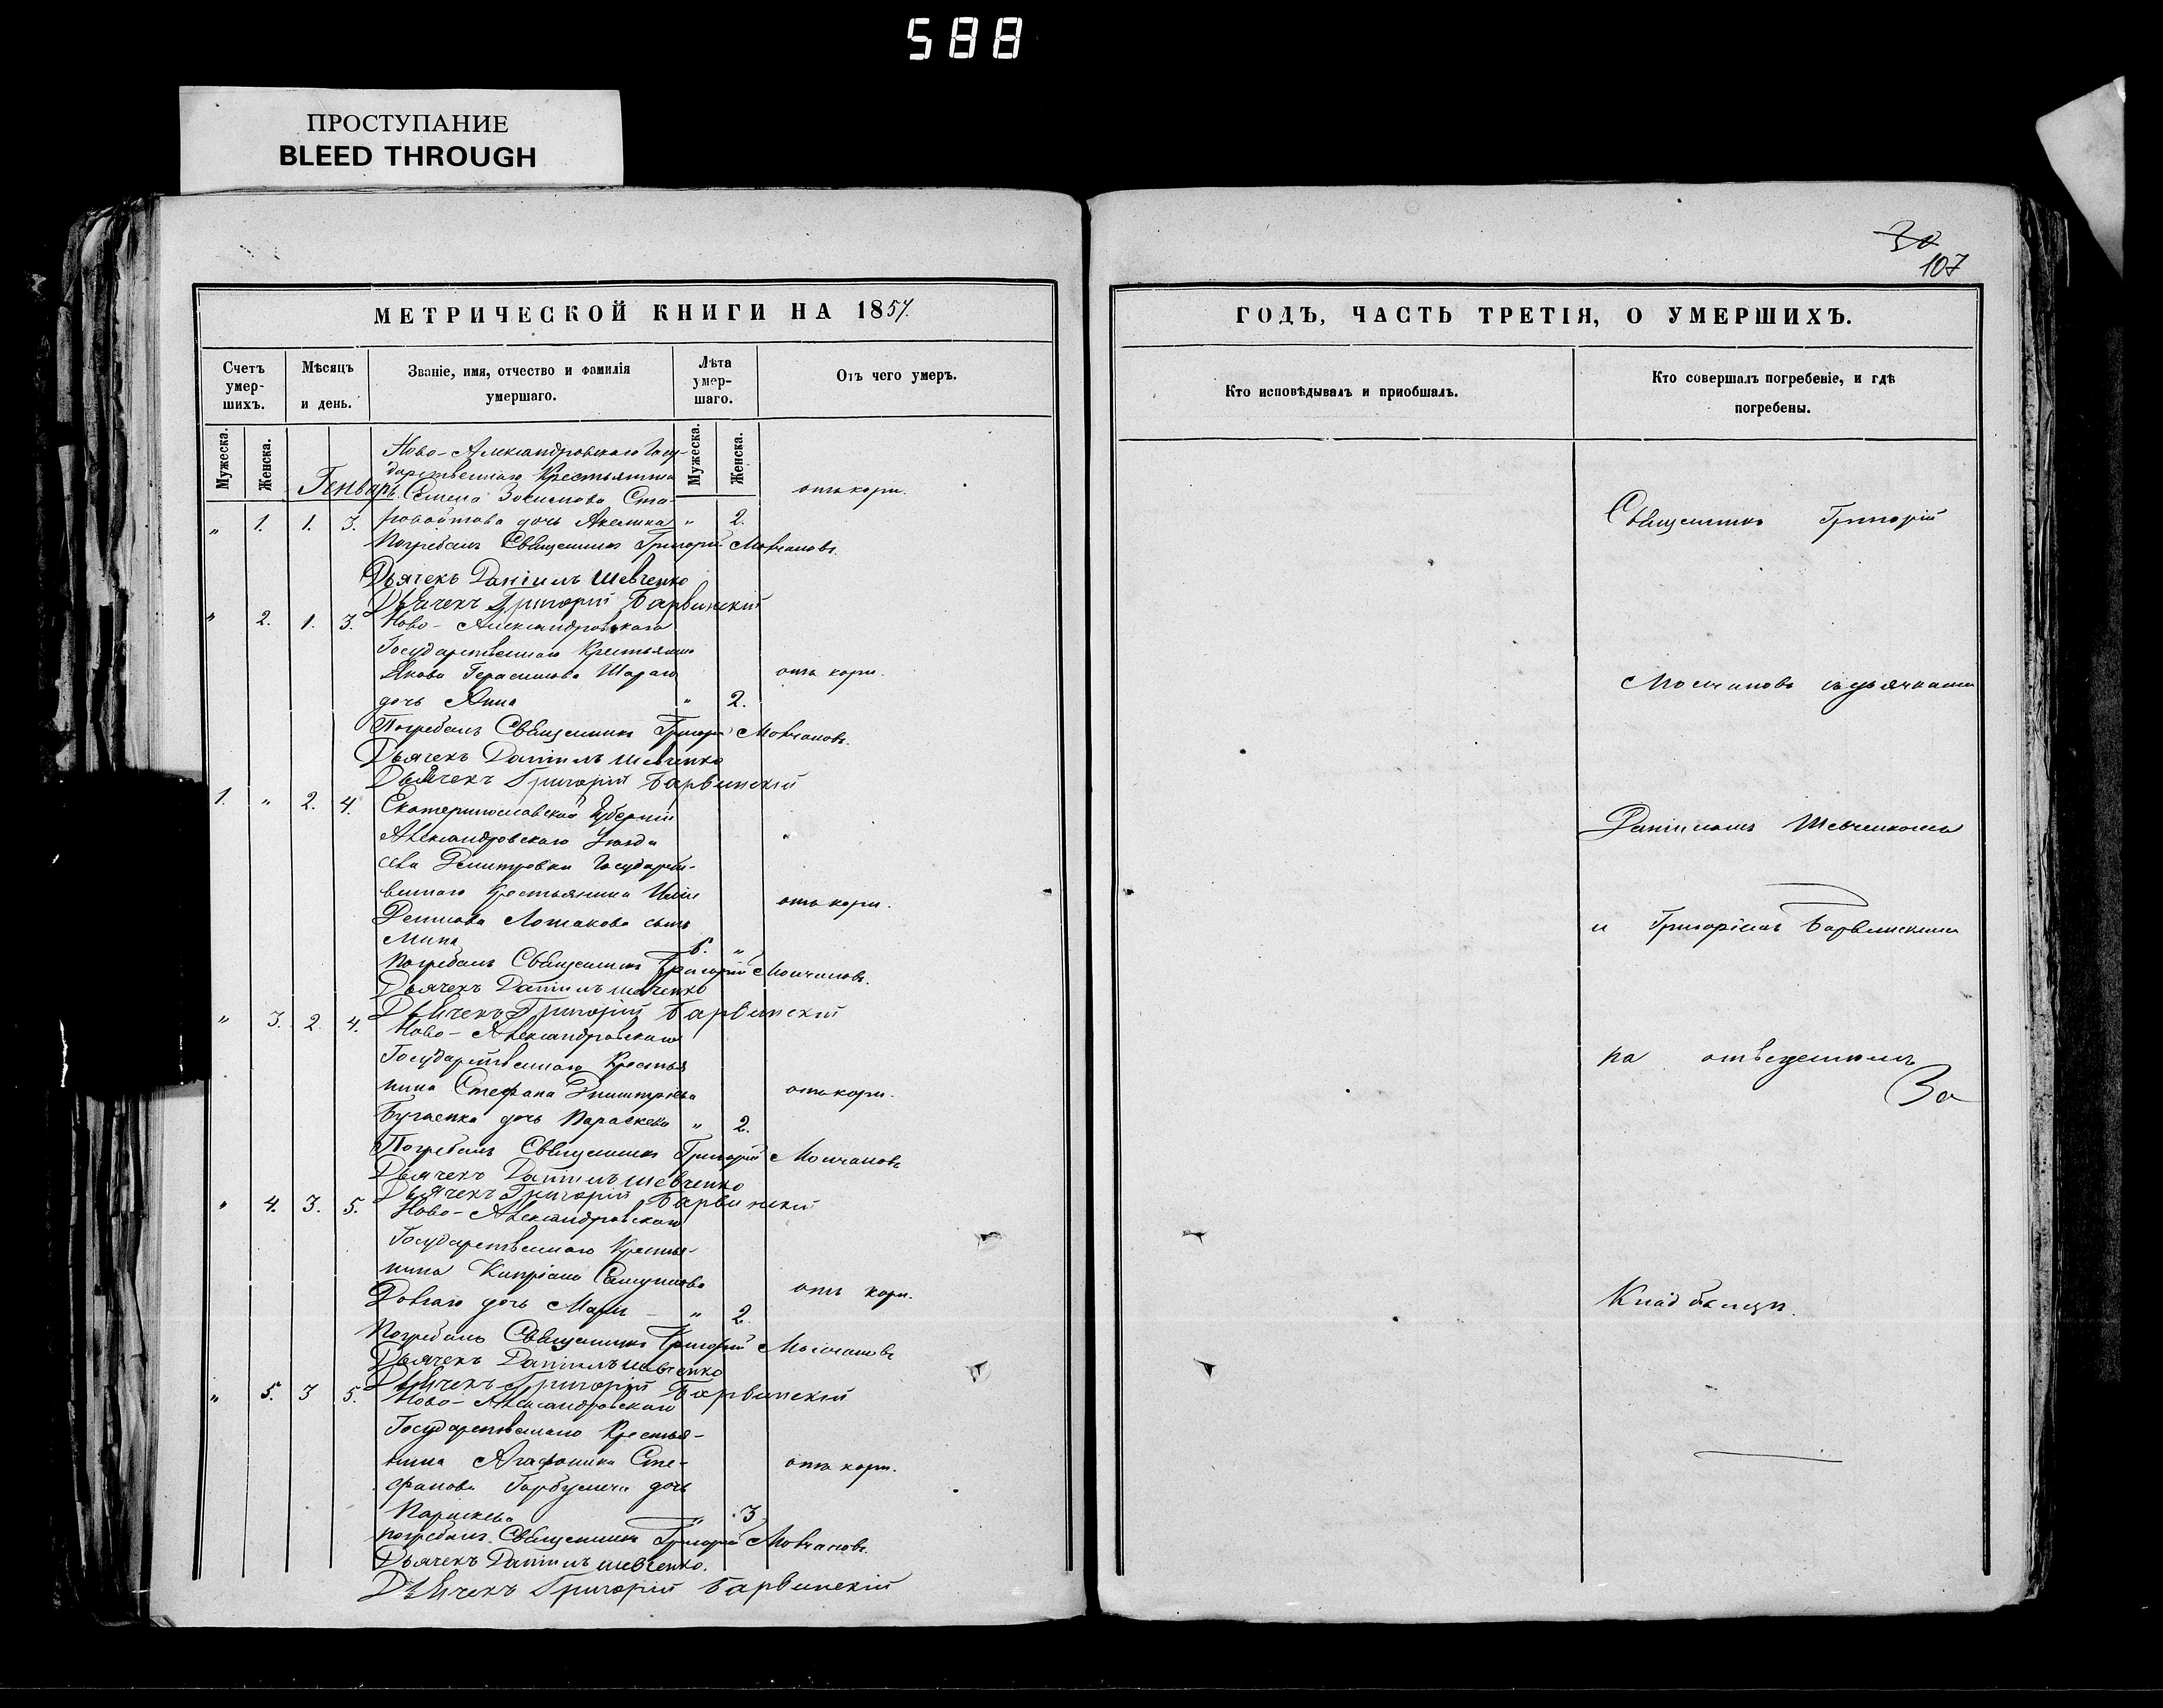 588
ПРОСТУПАНИЕ
BLEED THROUGH
30
107
МЕТРИЧЕСКОЙ КНИГИ НА 1857.
ГОДЪ, ЧАСТЬ ТРЕТІЯ, О УМЕРШИХЪ.
Счетъ умер-шихъ.
Мѣсяцъ и день.
Званіе, имя, отчество и фамилія умершаго.
Лѣта умер-шаго.
Отъ чего умеръ.
Кто исповѣдывалъ и пріобщалъ.
Кто совершалъ погребеніе, и гдѣ погребены.
Мужеска.
Женска.
Мужеска.
Женска.
Генварь
Ново-Александровскаго Госу-
дарственнаго Крестьянина
Семена Зосимова
" 1. 1. 3. дочь Акелина " 2.
отъ кори.
Погребалъ Священникъ Григорій Молчановъ.
Дьячекъ Даніилъ Шевченко
Дьячекъ Григорій Барвинскій
" 2. 1. 3. Ново-Александровскаго
Государственнаго Крестьянина
Якова Герасимова отъ кори.
дочь Анна " 2.
Погребалъ Священникъ Григорій Молчановъ.
Дьячекъ Даніилъ Шевченко
Дьячекъ Григорій Барвинскій
1. " 2. 4. Екатеринославской Губерніи
Александровскаго Уѣзда
села Дмитровки Государст-
веннаго Крестьянина отъ кори.
сынъ
Мина "
Погребалъ Священникъ Григорій Молчановъ.
Дьячекъ Даніилъ Шевченко
Дьячекъ Григорій Барвинскій
" 3. 2. 4. Ново-Александровскаго
Государственнаго Крестья
нина Стефана Димитріева отъ кори.
дочь Параскева " 2.
Погребалъ Священникъ Григорій Молчановъ
Дьячекъ Даніилъ Шевченко
Дьячекъ Григорій Барвинскій
" 4. 3. 5. Ново-Александровскаго
Государственнаго Крестья-
нина Кипріана отъ кори.
Довгаго дочь " 2.
Погребалъ Священникъ Григорій Молчановъ
Дьячекъ Даніилъ Шевченко
Дьячекъ Григорій Барвинскій
" 5. 3 5. Ново-Александровскаго
Государственнаго Крестья-
нина Агафоника Сте- отъ кори.
фанова дочь
Параскева " 3
Погребалъ Священникъ Григорій Молчановъ.
Дьячекъ Даніилъ Шевченко.
Дьячекъ Григорій Барвинскій
Священникъ Григорій
Молчановъ съ дьячками
Даніиломъ Шевченкомъ
и Григоріемъ Барвинскимъ
на отведенномъ
Кладбищѣ.